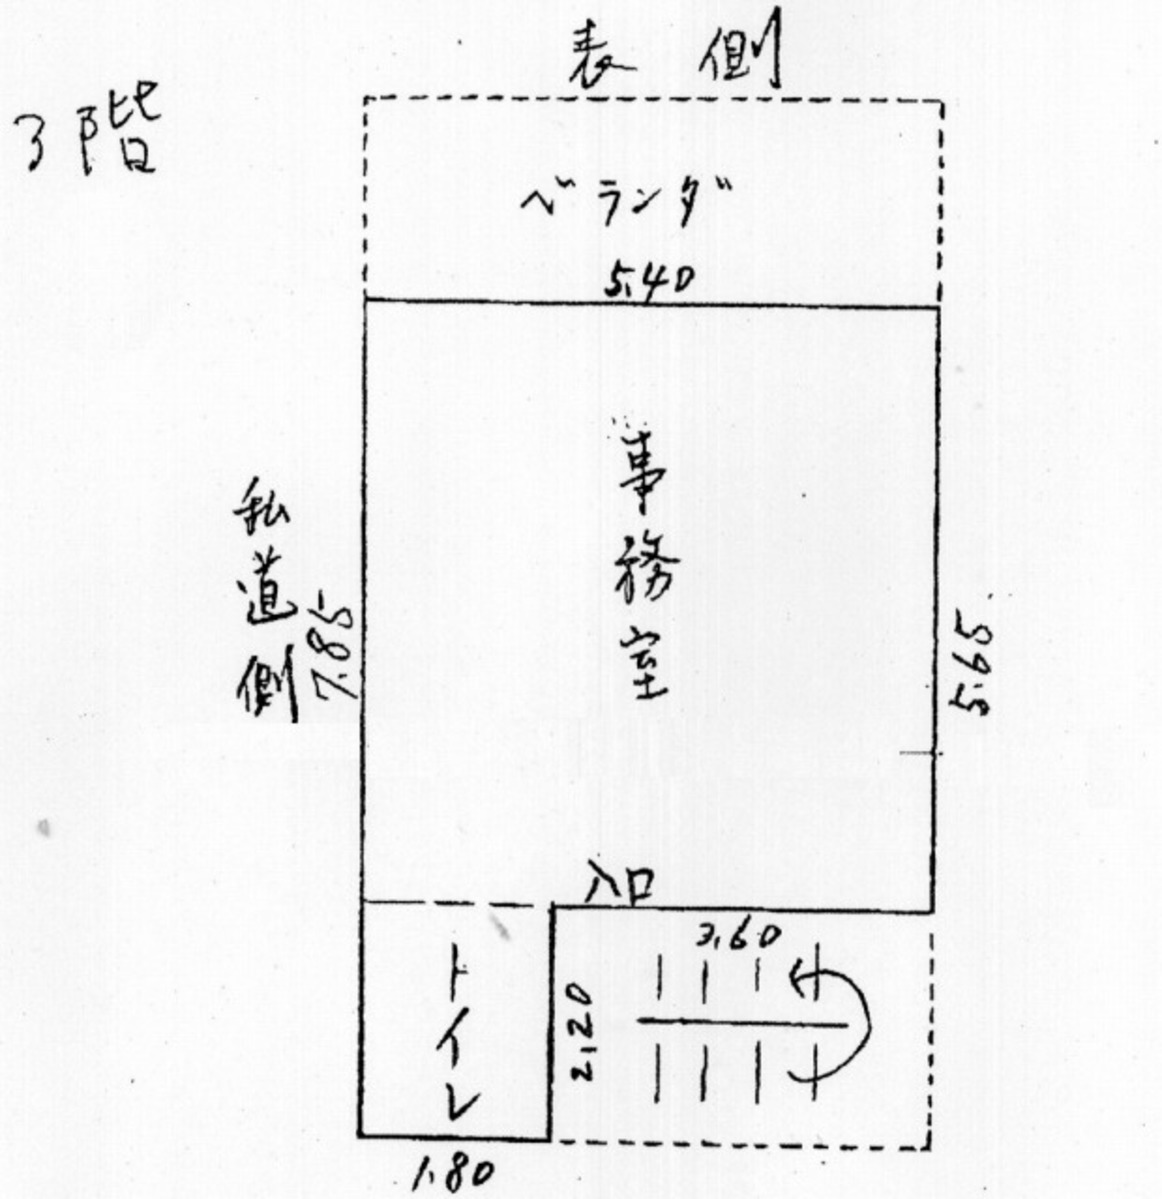 表側
3階
ベランダ
5.40
事務室
私道側
7.85
5.65
入口
3.60
トイレ
2.20
1.80